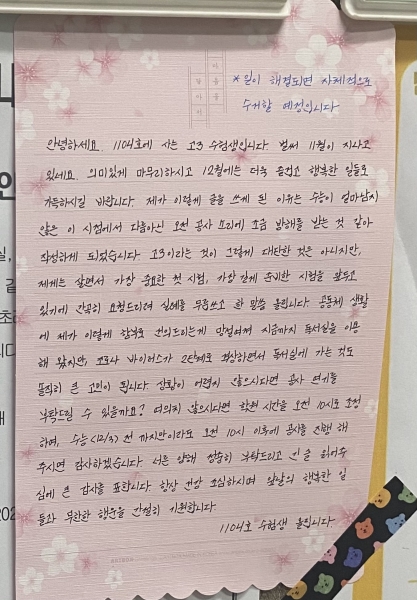 마음을
담아서
*일이 해결되면 자체적으로
수거할 예정입니다
안녕하세요. 1104호에 사는 고3 수험생입니다. 벌써 11월이 지나고
있네요. 의미있게 마무리하시고 12월에는 더욱 즐겁고 행복한 일들로
가득하시길 바랍니다. 제가 이렇게 글을 쓰게 된 이유는 수능이 얼마남지
않은 이 시점에서 다름아닌 오전 공사 소리에 조금 방해를 받는 것 같아
작성하게 되었습니다. 고3이라는 것이 그렇게 대단한 것은 아니지만,
제게는 살면서 가장 중요한 첫 시험, 가장 길게 준비한 시험을 앞두고
있기에 간곡히 요청드리려 실례를 무릅쓰고 한 말씀 올립니다. 공동체 생활
에 제가 이렇게 함부로 건의드리는게 망설여져 지금까지 독서실을 이용
해 왔지만, 코로나 바이러스가 2단계로 격상하면서 독서실에 가는 것도
솔직히 큰 고민이 됩니다. 상황이 어렵지 않으시다면 공사 연기를
부탁드릴 수 있을까요? 여의치 않으시다면 학원 시간을 오전 10시로 조정
하여, 수능(12/3) 전 까지만이라도 오전 10시 이후에 공사를 진행 해
주시면 감사하겠습니다. 너른 양해 정중히 부탁드리고 긴 글 읽어주
심에 큰 감사를 표합니다. 항상 건강 조심하시며 앞날의 행복한 일
들과 무한한 행운을 간절히 기원합니다.
1104호 수험생 올림니다.